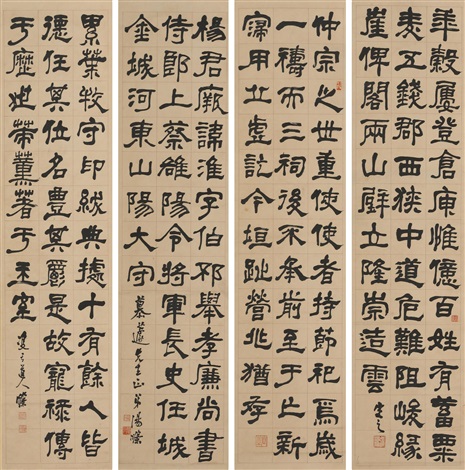 年穀屢登倉庾惟億百姓有蓄粟
麦五錢郡西狹中道危難阻峻緣
崖俾閣兩山壁立隆崇造雲
定之
仲宗之世重使使者持節祀焉歲
一禱而三祠後不承前至于亡新
寖用丘虛訖今垣趾營兆猶存
楊君厥諱淮字伯邳舉孝廉尚書
侍郎上蔡雒陽令將軍長史任城
金城河東山陽大守
慕蘧先生正 弟湯滌
累葉牧守印紱典據十有餘人皆
德任其位名豐其爵是故寵祿傳
于歷世策薰著于王室
道人滌